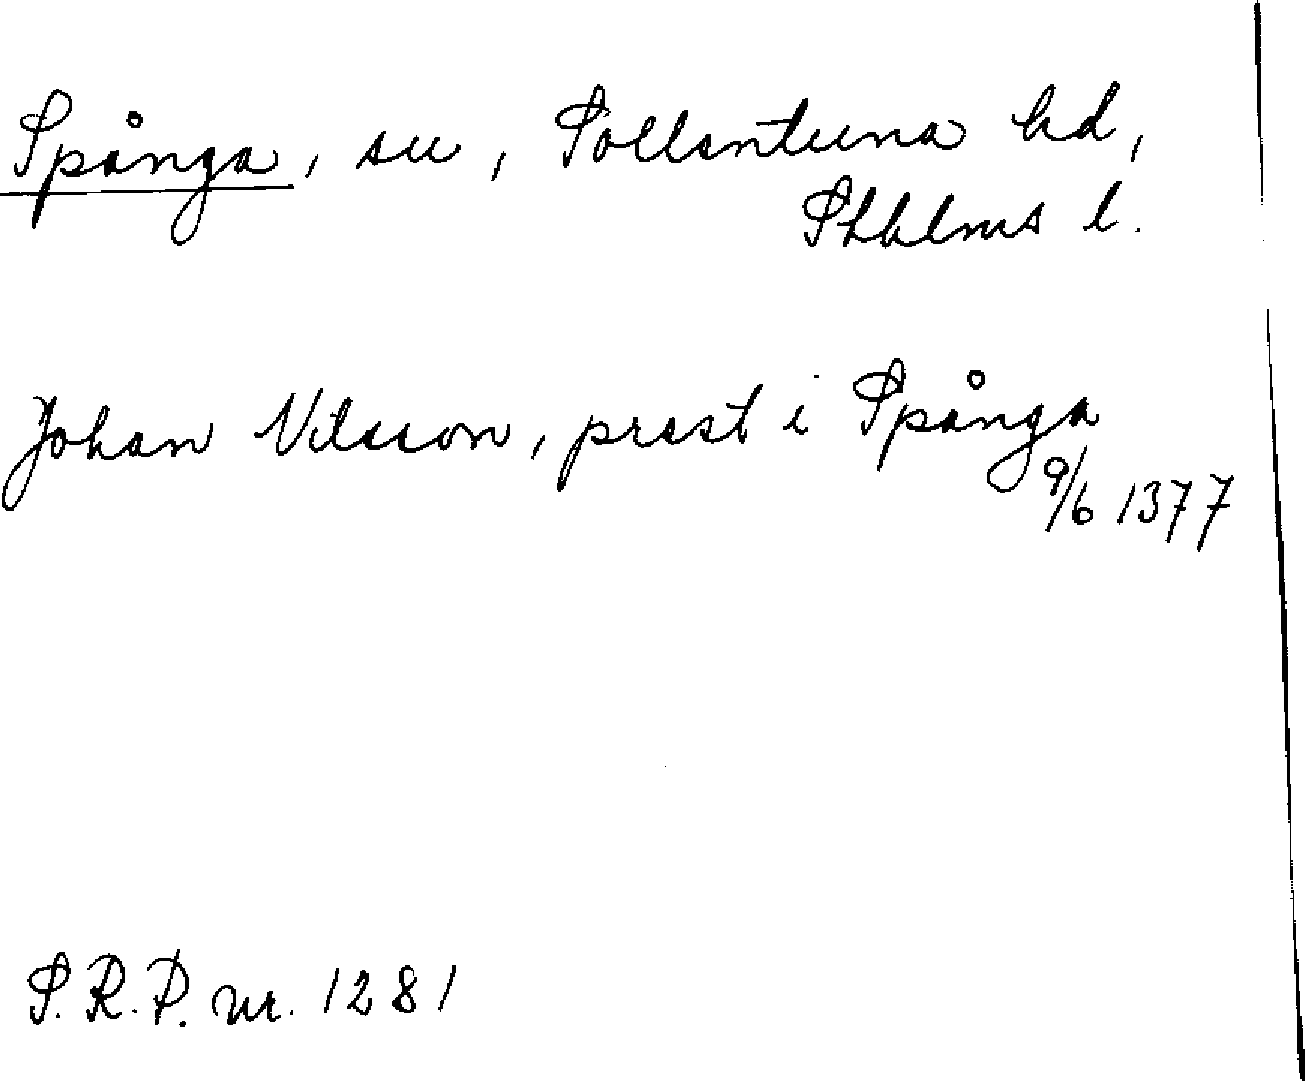 Spånga, sn, Sollentuna hd,
Sthlms l.
Johan Nilsson, prest i Spånga
9/6 1377
S.R.P. nr. 1281